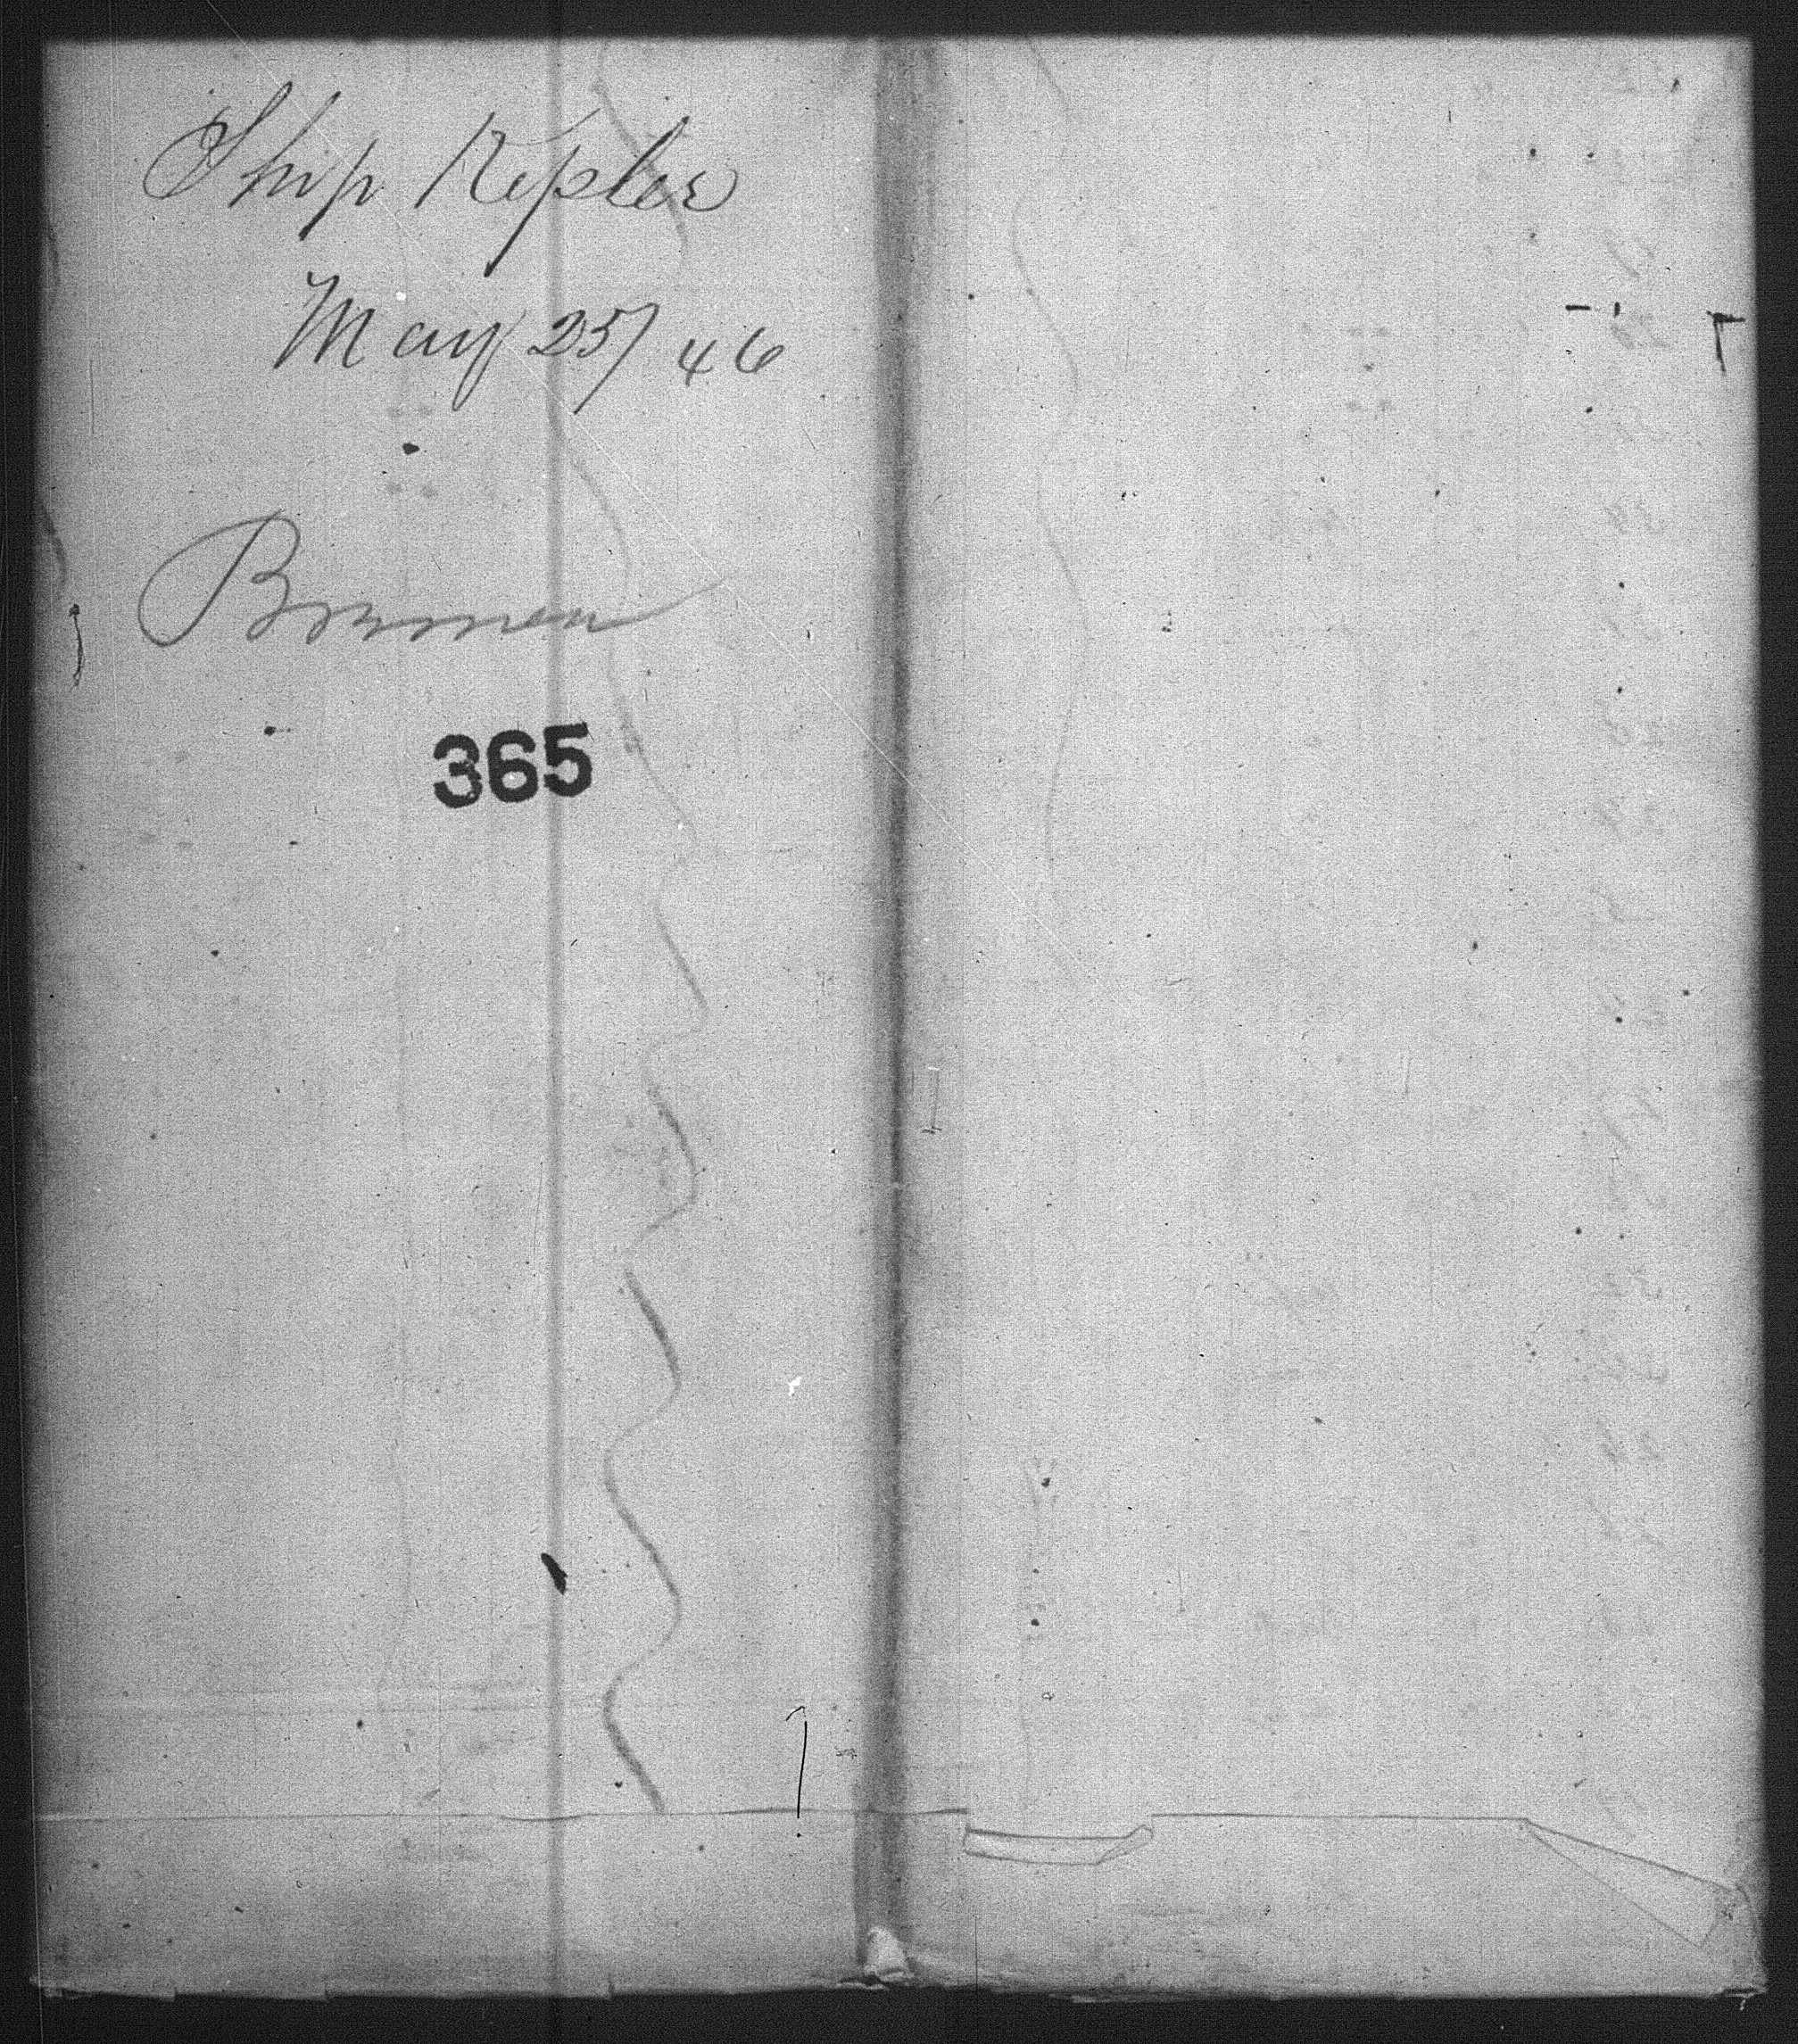 Ship Kepler
May 25/46
Bremen
365